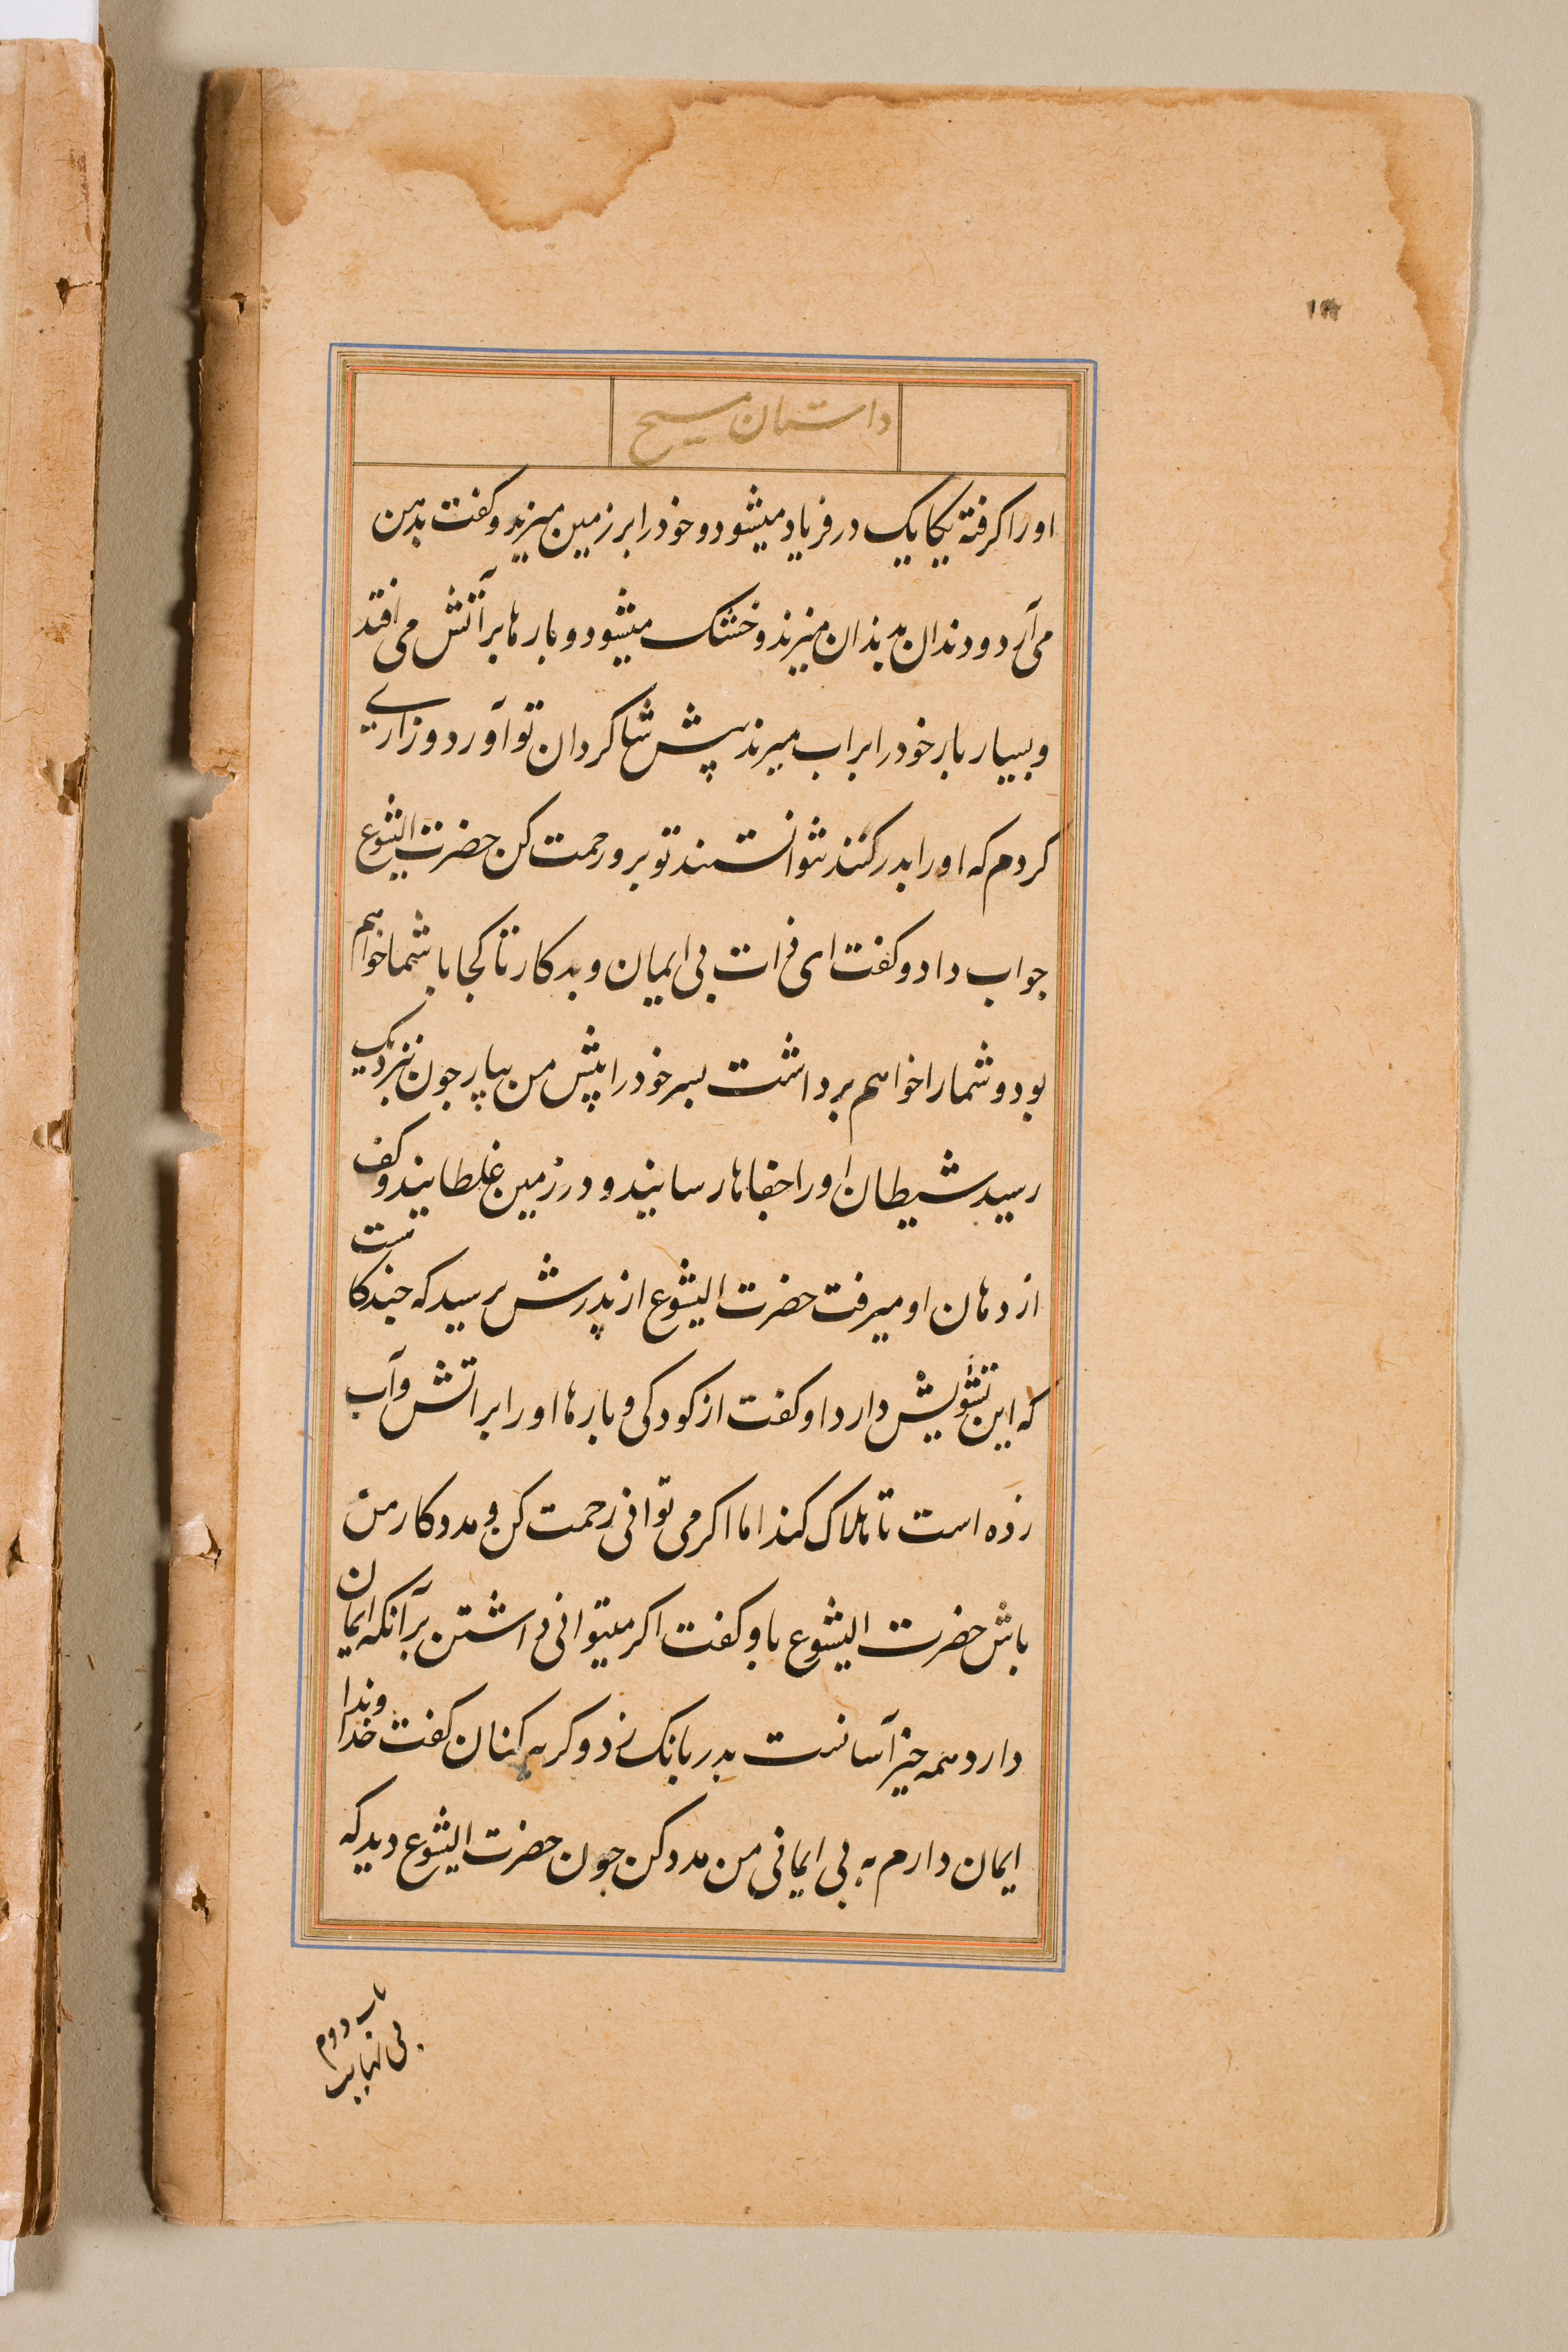 داستان مسیح
اورا کرفته یکایک در فریاد میشود و خودرا بر زمین میزند و کفت بدهن
می آرد و دندان بدندان میزند و خشک میشود و بارها بر آتش می افتد
و بسیار بار خودرا بر اب میزند پیش شاکردان تو آورد و زاری
کردم که اورا بدر کنند نتوانستند تو برو رحمت کن حضرت الیشوع
جواب داد و کفت ای ذرات بی ایمان و بدکار تا کجا با شما خواهم
بود و شمارا خواهم برداشت پسر خودرا پیش من بیار چون نزدیک
رسید شیطان اورا جفاها رسانید و در زمین غلطانید و کف
از دهان او میرفت حضرت الیشوع از پدرش پرسید که چند کاست
که این تشویش دارد او کفت از کودکی و بارها اورا بر اتش و آب
زده است تا هلاک کند اما اکر می توانی رحمت کن و مددکار من
باش حضرت الیشوع باو کفت اکر میتوانی داشتن بر آنکه ایمان
دارد همه چیز آسانست پدر بانک زد و کریه کنان کفت خداوندا
ایمان دارم به بی ایمانی من مدد کن چون حضرت الیشوع دید که
باب دوم